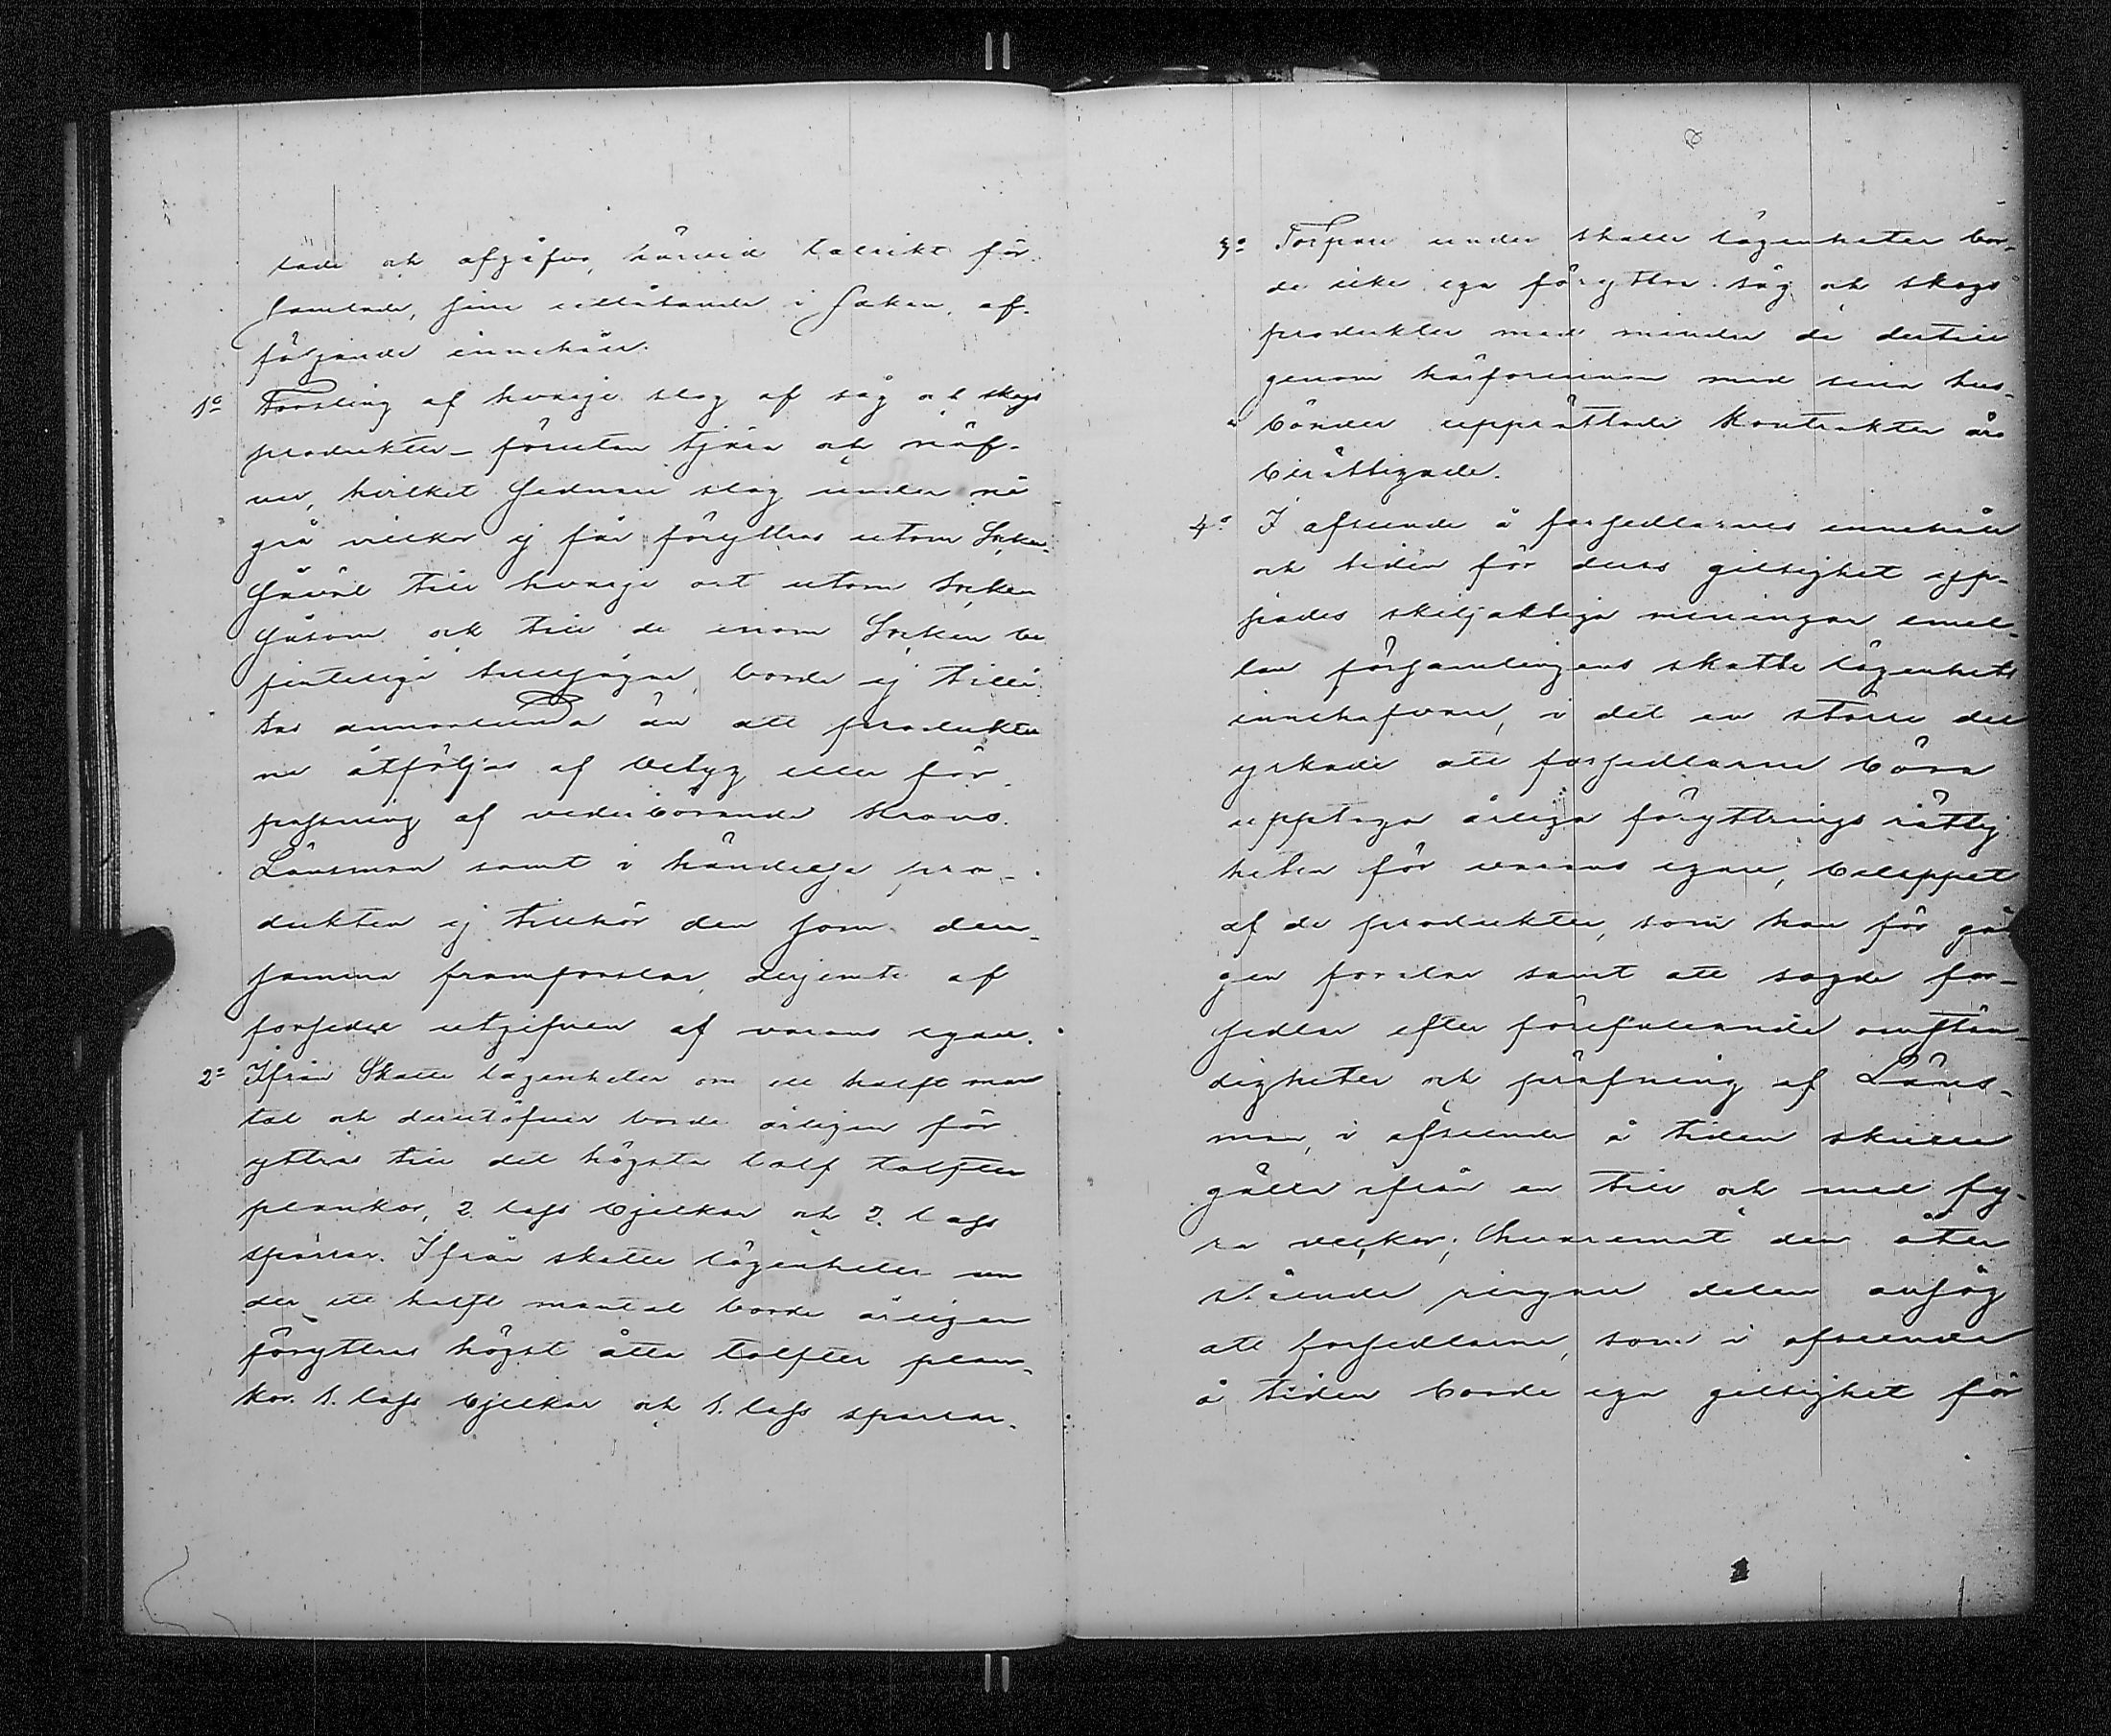 lade och afgåfvo, härvid talrikt för-
samlade, sine utlåtande i saken, af
följande innehåll.
1o Forsling af hvarje slag af såg och skogs
produkter – förutan tjära och näf-
ver, hvilket sednare slag under nå
gra vilkor ej får föryttras utom Socken
såväl till hvarje ort utom Socken
såsom och till de inom Socken be
fintelige sågar, borde ej tillå-
tas annorlunda än att produkter
ne åtföljas af betyg eller för-
passning af vederbörande Krono-
Länsman samt i händelse pro-
dukten ej tillhör den som den-
samma framforslar, derjemte af
forsedel utgifven af varans egare.
2o Ifrån Skatte lägenheter om ett halft man
tal och derutöfver borde årligen för
yttras till det högsta tolf tolfter
plankor, 2. lass bjelkar och 2. lass
sparrar. Ifrån skatte lägenheter un
der ett halft mantal borde årligen
föryttras högst åtta tolfter plan-
kor. 1. lass bjelkar och 1. lass sparrar.
3o Torpare under skatte lägenheter bor-
de icke ega föryttra såg och skogs
produkter med mindre de dertill
genom härförinnan med sina hus-
bönder upprättade kontrakter äro
berättigade.
4o I afseende å forsedlarnes innehåll
och tiden för dess giltighet upp-
stades skiljaktiga meningar emel-
lan församlingens skatte lägenhets
innehafvare, i det en större del
yrkade att forsedlarne böra
upptaga årliga föryttrings rättig
heten för varans egare, beloppet
af de produkter, som han för gån
gen forslar samt att sagde for-
sedlar efter förefallande omstän-
digheter och pröfning af Läns-
man, i afseende å tiden skulle
gälla ifrån en till och med fy-
ra veckor; hvaremot den åter
stående ringare delen ansåg
att forsedlarne, som i afseende
å tiden borde ega giltighet för